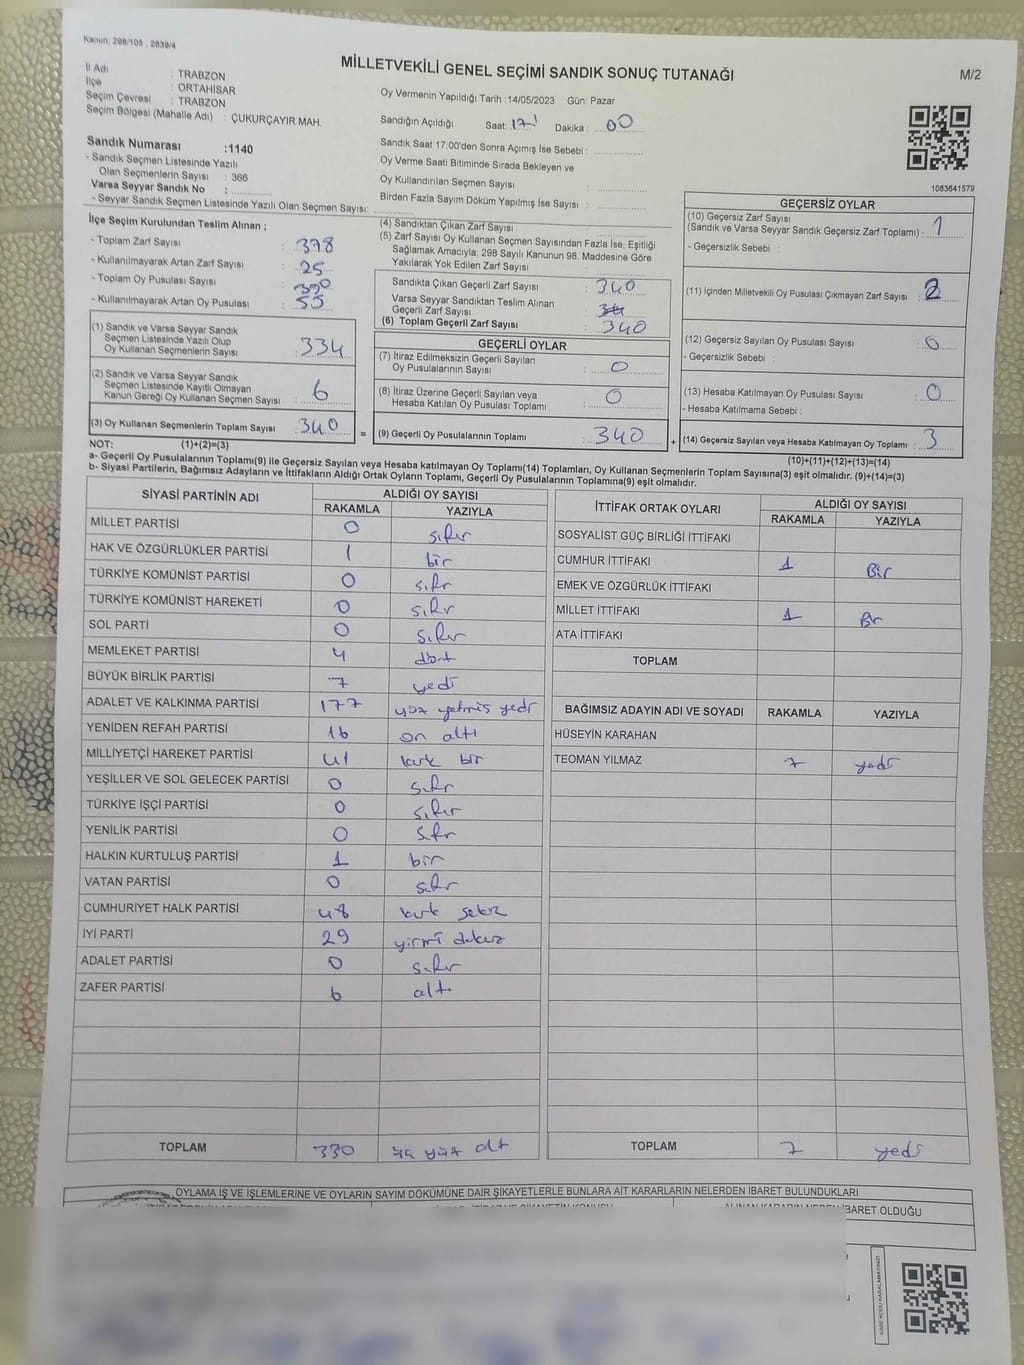 Kanun: 298/105 , 2839/4
MİLLETVEKİLİ GENEL SEÇİMİ SANDIK SONUÇ TUTANAĞI
M/2
İl Adı : TRABZON
İlçe : ORTAHİSAR
Seçim Çevresi : TRABZON
Seçim Bölgesi (Mahalle Adı) : ÇUKURÇAYIR MAH.
Oy Vermenin Yapıldığı Tarih :14/05/2023 Gün: Pazar
Sandığın Açıldığı Saat: 17 Dakika : 00
Sandık Saat 17:00'den Sonra Açımış İse Sebebi :
Oy Verme Saati Bitiminde Sırada Bekleyen ve
Oy Kullandırılan Seçmen Sayısı :
Birden Fazla Sayım Döküm Yapılmış İse Sayısı :
1083641579
Sandık Numarası :1140
- Sandık Seçmen Listesinde Yazılı
Olan Seçmenlerin Sayısı : 366
Varsa Seyyar Sandık No :
- Seyyar Sandık Seçmen Listesinde Yazılı Olan Seçmen Sayısı:
İlçe Seçim Kurulundan Teslim Alınan ;
- Toplam Zarf Sayısı : 378
- Kullanılmayarak Artan Zarf Sayısı : 25
- Toplam Oy Pusulası Sayısı : 390
- Kullanılmayarak Artan Oy Pusulası : 55
(1) Sandık ve Varsa Seyyar Sandık
Seçmen Listesinde Yazılı Olup
Oy Kullanan Seçmenlerin Sayısı : 334
(2) Sandık ve Varsa Seyyar Sandık
Seçmen Listesinde Kayıtlı Olmayan
Kanun Gereği Oy Kullanan Seçmen Sayısı : 6
(3) Oy Kullanan Seçmenlerin Toplam Sayısı : 340
(4) Sandıktan Çıkan Zarf Sayısı :
(5) Zarf Sayısı Oy Kullanan Seçmen Sayısından Fazla İse, Eşitliği
Sağlamak Amacıyla; 298 Sayılı Kanunun 98. Maddesine Göre
Yakılarak Yok Edilen Zarf Sayısı :
Sandıkta Çıkan Geçerli Zarf Sayısı : 340
Varsa Seyyar Sandıktan Teslim Alınan
Geçerli Zarf Sayısı :
(6) Toplam Geçerli Zarf Sayısı : 340
GEÇERLİ OYLAR
(7) İtiraz Edilmeksizin Geçerli Sayılan
Oy Pusulalarının Sayısı : 0
(8) İtiraz Üzerine Geçerli Sayılan veya
Hesaba Katılan Oy Pusulası Toplamı : 0
= (9) Geçerli Oy Pusulalarının Toplamı : 340
GEÇERSİZ OYLAR
(10) Geçersiz Zarf Sayısı
(Sandık ve Varsa Seyyar Sandık Geçersiz Zarf Toplamı) : 1
- Geçersizlik Sebebi :
(11) İçinden Milletvekili Oy Pusulası Çıkmayan Zarf Sayısı : 2
(12) Geçersiz Sayılan Oy Pusulası Sayısı : 0
- Geçersizlik Sebebi :
(13) Hesaba Katılmayan Oy Pusulası Sayısı : 0
- Hesaba Katılmama Sebebi :
+ (14) Geçersiz Sayılan veya Hesaba Katılmayan Oy Toplamı : 3
NOT: (1)+(2)=(3)
(10)+(11)+(12)+(13)=(14)
a- Geçerli Oy Pusulalarının Toplamı(9) ile Geçersiz Sayılan veya Hesaba katılmayan Oy Toplamı(14) Toplamları, Oy Kullanan Seçmenlerin Toplam Sayısına(3) eşit olmalıdır. (9)+(14)=(3)
b- Siyasi Partilerin, Bağımsız Adayların ve İttifakların Aldığı Ortak Oyların Toplamı, Geçerli Oy Pusulalarının Toplamına(9) eşit olmalıdır.
SİYASİ PARTİNİN ADI ALDIĞI OY SAYISI
RAKAMLA YAZIYLA
MİLLET PARTİSİ 0 sıfır
HAK VE ÖZGÜRLÜKLER PARTİSİ 1 bir
TÜRKİYE KOMÜNİST PARTİSİ 0 sıfır
TÜRKİYE KOMÜNİST HAREKETİ 0 sıfır
SOL PARTİ 0 sıfır
MEMLEKET PARTİSİ 4 dört
BÜYÜK BİRLİK PARTİSİ 7 yedi
ADALET VE KALKINMA PARTİSİ 177 yüz yetmiş yedi
YENİDEN REFAH PARTİSİ 16 on altı
MİLLİYETÇİ HAREKET PARTİSİ 41 kırk bir
YEŞİLLER VE SOL GELECEK PARTİSİ 0 sıfır
TÜRKİYE İŞÇİ PARTİSİ 0 sıfır
YENİLİK PARTİSİ 0 sıfır
HALKIN KURTULUŞ PARTİSİ 1 bir
VATAN PARTİSİ 0 sıfır
CUMHURİYET HALK PARTİSİ 48 kırk sekiz
İYİ PARTİ 29 yirmi dokuz
ADALET PARTİSİ 0 sıfır
ZAFER PARTİSİ 6 altı
TOPLAM 330
İTTİFAK ORTAK OYLARI ALDIĞI OY SAYISI
RAKAMLA YAZIYLA
SOSYALİST GÜÇ BİRLİĞİ İTTİFAKI
CUMHUR İTTİFAKI 1 Bir
EMEK VE ÖZGÜRLÜK İTTİFAKI
MİLLET İTTİFAKI 1 Bir
ATA İTTİFAKI
TOPLAM
BAĞIMSIZ ADAYIN ADI VE SOYADI RAKAMLA YAZIYLA
HÜSEYİN KARAHAN
TEOMAN YILMAZ 7 yedi
TOPLAM 7 yedi
OYLAMA İŞ VE İŞLEMLERİNE VE OYLARIN SAYIM DÖKÜMÜNE DAİR ŞİKAYETLERLE BUNLARA AİT KARARLARIN NELERDEN İBARET BULUNDUKLARI
İBARET OLDUĞU